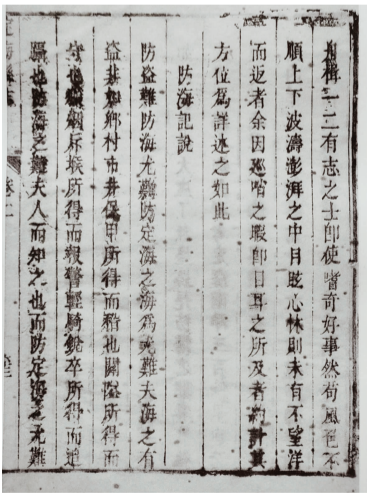 舟楫一二有志之士即使嗜奇好事然苟風色不
順上下波濤澎湃之中目眩心怵則未有不望洋
而返者余因巡哨之暇即目耳之所及者約計其
方位爲詳述之如此
防海記說
防盜難防海尤難防定海之海爲死難夫海之有
盜非如鄉村市井保甲所得而稽也關隘所得而
守也斥堠所得而報警輕騎銳卒所得而追
躡也防海之難夫人而知之也而防定海之尤難